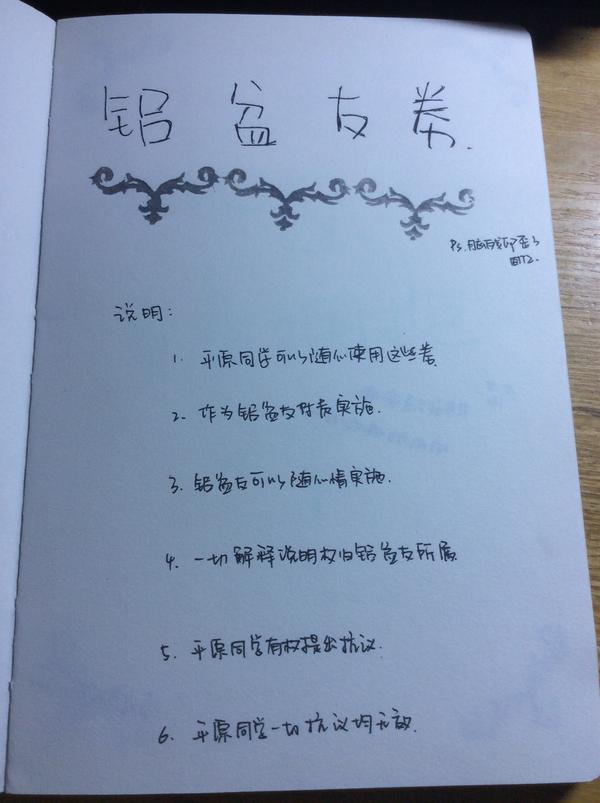 铝盆友券.
Ps.
说明:
1. 平原同学可以随心使用这些券
2. 作为铝盆友对表实施.
3. 铝盆友可以随心情实施.
4. 一切解释说明权归铝盆友所属
5. 平原同学有权提出抗议.
6. 平原同学一切抗议均无效.